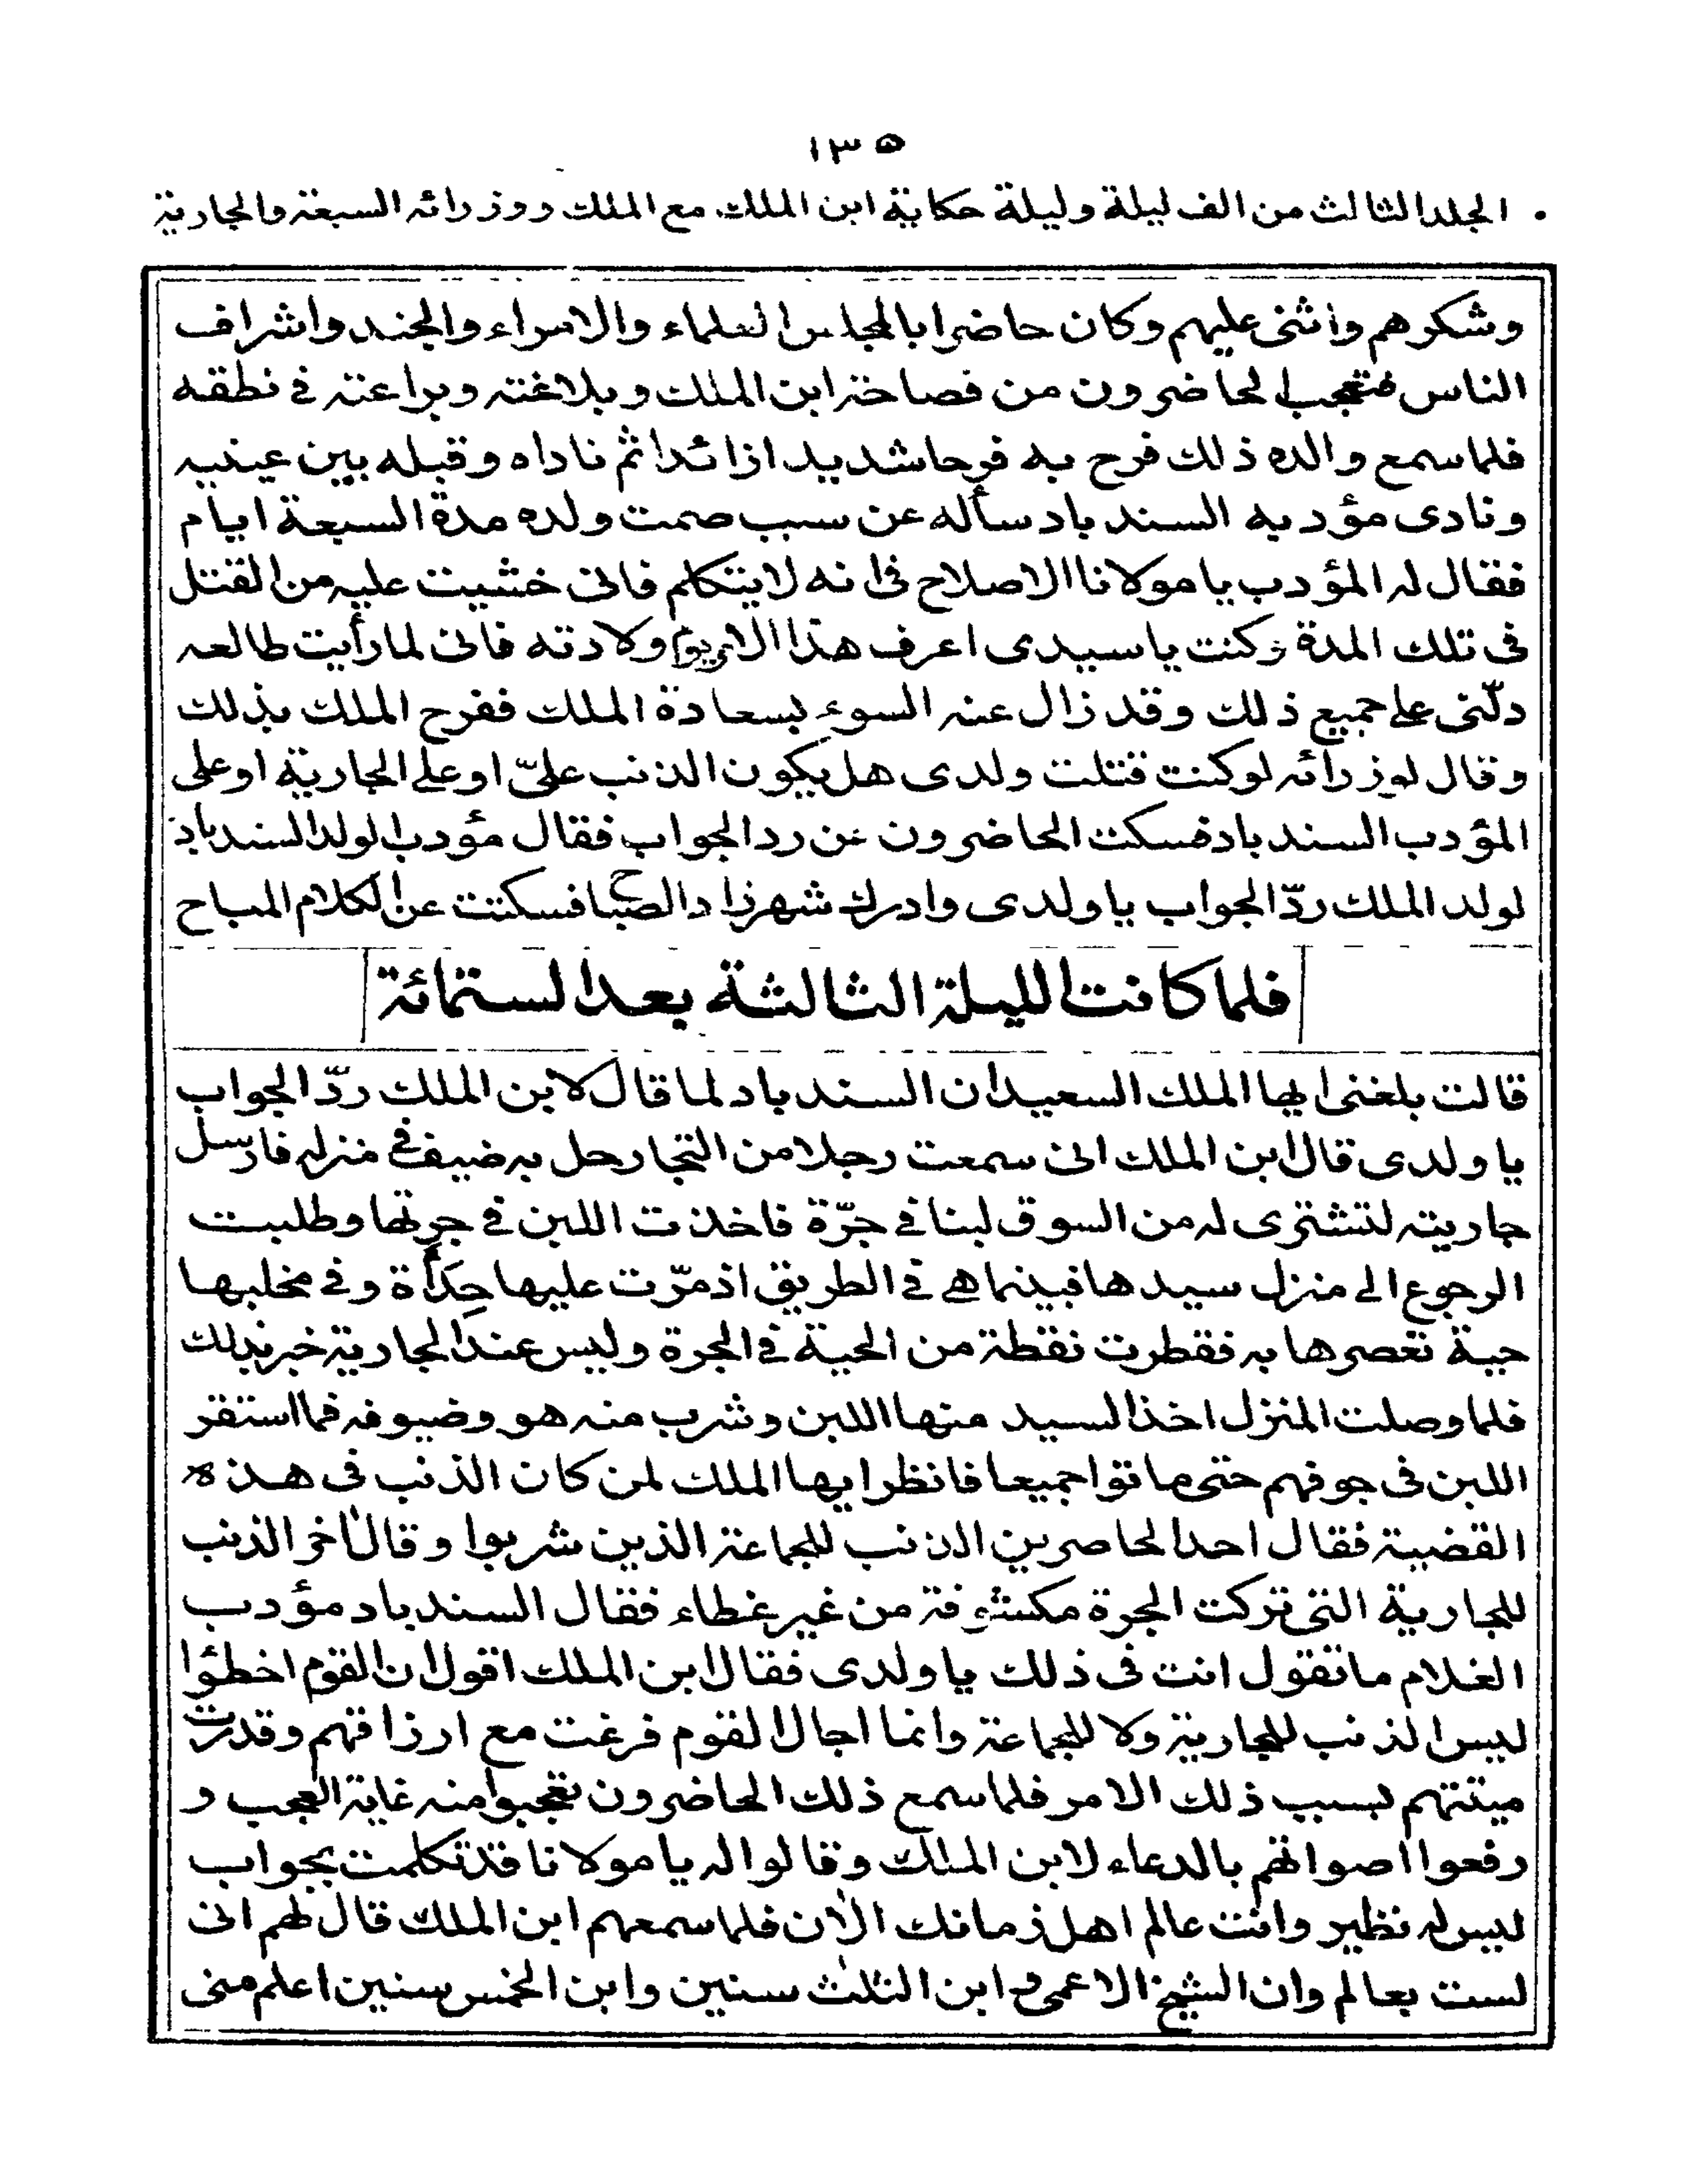 ١٣٥
الجلد الثالث من الف ليلة وليلة حكاية ابن الملك مع الملك ووزرائه السبعة والجارية
وشكرهم واثنى عليهم وكان حاضرا بالمجلس العلماء والامراء والجند واشراف
الناس فتعجب الحاضرون من فصاحة ابن الملك وبلاغته وبراعته في نطقه
فلما سمع والده ذلك فرح به فرحا شديدا زائدا ثم ناداه وقبله بين عينيه
ونادى مؤدبه السندباد سأله عن سبب صمت ولده مدة السبعة ايام
فقال له المؤدب يا مولانا الاصلاح في انه لا يتكلم فانى خشيت عليه من القتل
فى تلك المدة وكنت يا سيدى اعرف هذا الامر يوم ولادته فانى لما رأيت طالعه
دلّنى على جميع ذلك وقد زال عنه السوء بسعادة الملك ففرح الملك بذلك
وقال لوزرائه لو كنت قتلت ولدى هل يكون الذنب علىّ او على الجارية او على
المؤدب السندباد فسكت الحاضرون عن رد الجواب فقال مؤدب الولد السندباد
لولد الملك ردّ الجواب يا ولدى وادرك شهرزاد الصباح فسكتت عن الكلام المباح
فلما كانت الليلة الثالثة بعد الستمائة
قالت بلغنى ايها الملك السعيد ان السندباد لما قال لابن الملك ردّ الجواب
يا ولدى قال ابن الملك انى سمعت رجلا من التجار حل به ضيف في منزله فارسل
جاريته لتشترى له من السوق لبنا في جرّة فاخذت اللبن في جرتها وطلبت
الرجوع الى منزل سيدها فبينما هي في الطريق اذ مرّت عليها حِدَأة وفي مخلبها
حية تعصرها به فقطرت نقطة من الحية في الجرة وليس عند الجارية خبر بذلك
فلما وصلت المنزل اخذ السيد منها اللبن وشرب منه هو وضيوفه فما استقر
اللبن فى جوفهم حتى ماتوا جميعا فانظر ايها الملك لمن كان الذنب فى هذه
القضية فقال احد الحاضرين الذنب للجماعة الذين شربوا وقال اخر الذنب
للجارية التى تركت الجرة مكشوفة من غير غطاء فقال السندباد مؤدب
الغلام ما تقول انت فى ذلك يا ولدى فقال ابن الملك اقول ان القوم اخطئوا
ليس الذنب للجارية ولا للجماعة وانما اجال القوم فرغت مع ارزاقهم وقدرت
ميتتهم بسبب ذلك الامر فلما سمع ذلك الحاضرون تعجبوا منه غاية العجب و
رفعوا اصواتهم بالدعاء لابن الملك وقالوا له يا مولانا قد تكلمت بجواب
ليس له نظير وانت عالم اهل زمانك الاٰن فلما سمعهم ابن الملك قال لهم انى
لست بعالم وان الشيخ الاعمى و ابن الثلٰث سنين وابن الخمس سنين اعلم منى